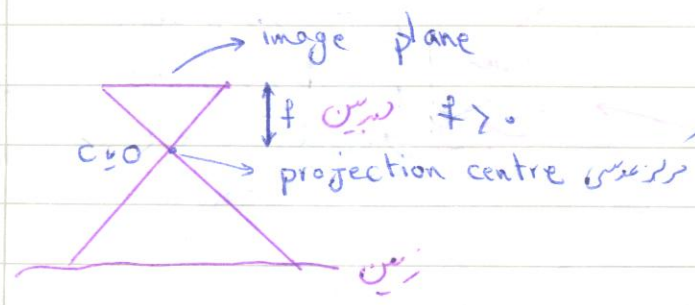 image plane
f دوربین f > ۰
C یا O
projection centre مرکز عدسی
زمین